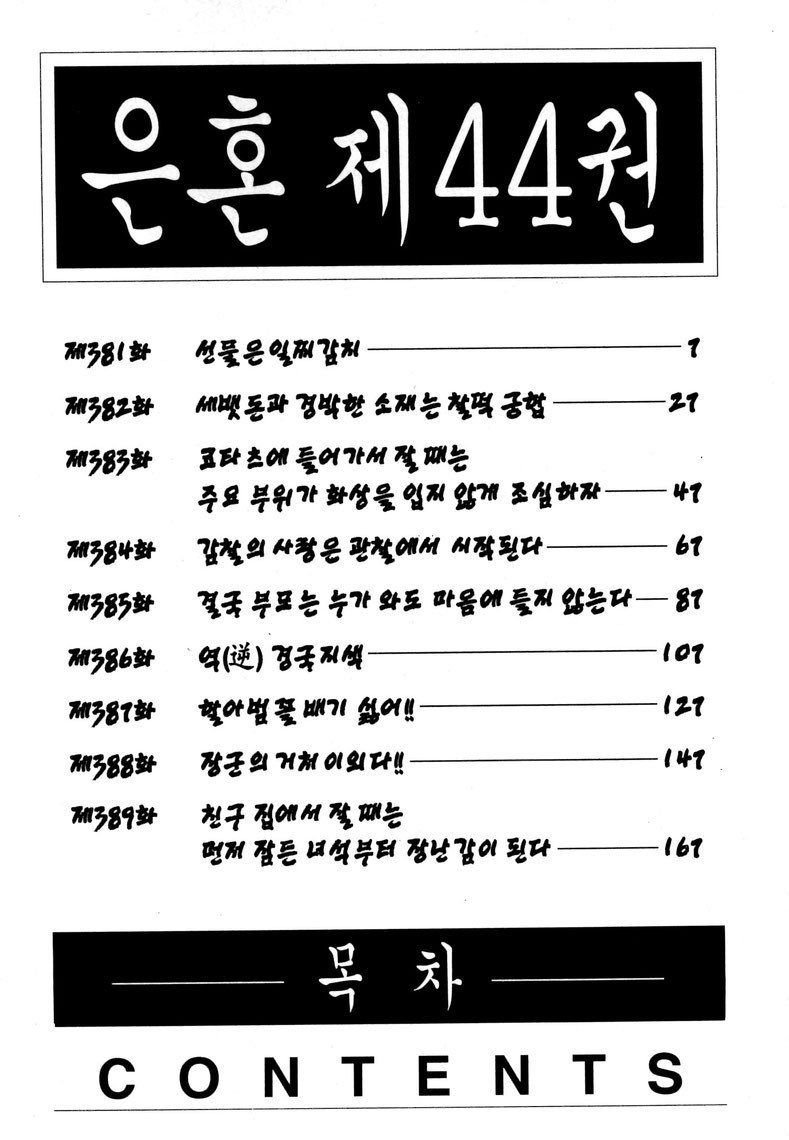 은혼 제44권
제381화 선물은 일찌감치 7
제382화 세뱃돈과 경박한 소재는 찰떡 궁합 27
제383화 코타츠에 들어가서 잘 때는
주요 부위가 화상을 입지 않게 조심하자 47
제384화 감찰의 사랑은 관찰에서 시작된다 67
제385화 결국 부모는 누가 와도 마음에 들지 않는다 87
제386화 역(逆) 경국지색 107
제387화 할아범 꼴 배기 싫어!! 127
제388화 장군의 거처이외다!! 147
제389화 친구 집에서 잘 때는
먼저 잠든 녀석부터 장난감이 된다 167
목 차
CONTENTS